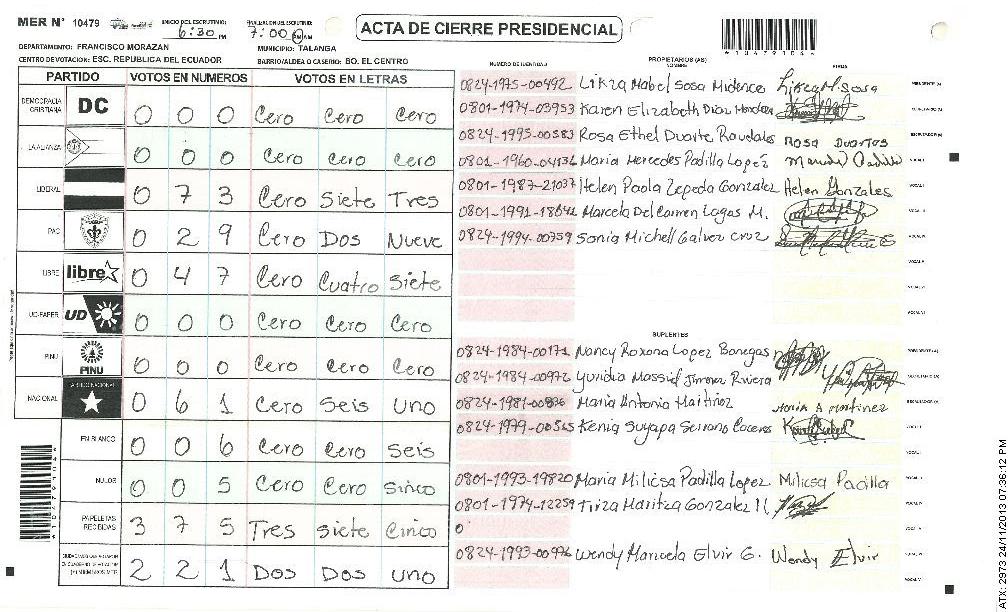 MER N° 10479
INICIO DEL ESCRUTINIO: 6:30 PM
FINALIZACION DEL ESCRUTINIO: 7:00 PM AM
ACTA DE CIERRE PRESIDENCIAL
DEPARTAMENTO: FRANCISCO MORAZAN
MUNICIPIO: TALANGA
CENTRO DE VOTACION: ESC. REPUBLICA DEL ECUADOR
BARRIO/ALDEA O CASERIO: BO. EL CENTRO
PARTIDO VOTOS EN NUMEROS VOTOS EN LETRAS
DEMOCRACIA CRISTIANA DC 0 0 0 Cero Cero Cero
LA ALIANZA 0 0 0 Cero Cero Cero
LIBERAL 0 7 3 Cero Siete Tres
PAC 0 2 9 Cero Dos Nueve
LIBRE libre 0 4 7 Cero Cuatro Siete
UD-FAPER UD 0 0 0 Cero Cero Cero
PINU PINU 0 0 0 Cero Cero Cero
NACIONAL 0 6 1 Cero Seis Uno
EN BLANCO 0 0 6 Cero Cero Seis
NULOS 0 0 5 Cero Cero Sinco
PAPELETAS RECIBIDAS 3 7 5 Tres Siete Cinco
2 2 1 Dos Dos Uno
NUMERO DE IDENTIDAD
PROPIETARIOS (AS)
NOMBRE
FIRMA
0824-1975-00492 Likza Mabel Sosa Midence
0801-1974-03953 Karen Elizabeth Diaz
0824-1995-00583 Rosa Ethel Duarte Raudales Rosa Duartes
0801-1960-04136 Maria Mercedes Padilla Lopez
0801-1987-21037 Helen Paola Zepeda Gonzalez Helen Gonzales
Marcela Del Carmen Lagas M.
0824-1994-00759 Sonia Michell Galvez Cruz
SUPLENTES
0824-1984-00171 Nancy Roxana Lopez Banegas
0824-1984-00972 Yuridia Massiel Jimenez Rivera
Maria Antonia Martinez Maria A Martinez
0824-1979-00565 Kenia Suyapa Serrano
0801-1993-19820 Maria Milicsa Padilla Lopez Milicsa Padilla
0801-1974-12259 Tirza Maritza Gonzalez
Wendy Manuela Elvir G. Wendy Elvir
ATX: 2973 24/11/2013 07:36:12 PM